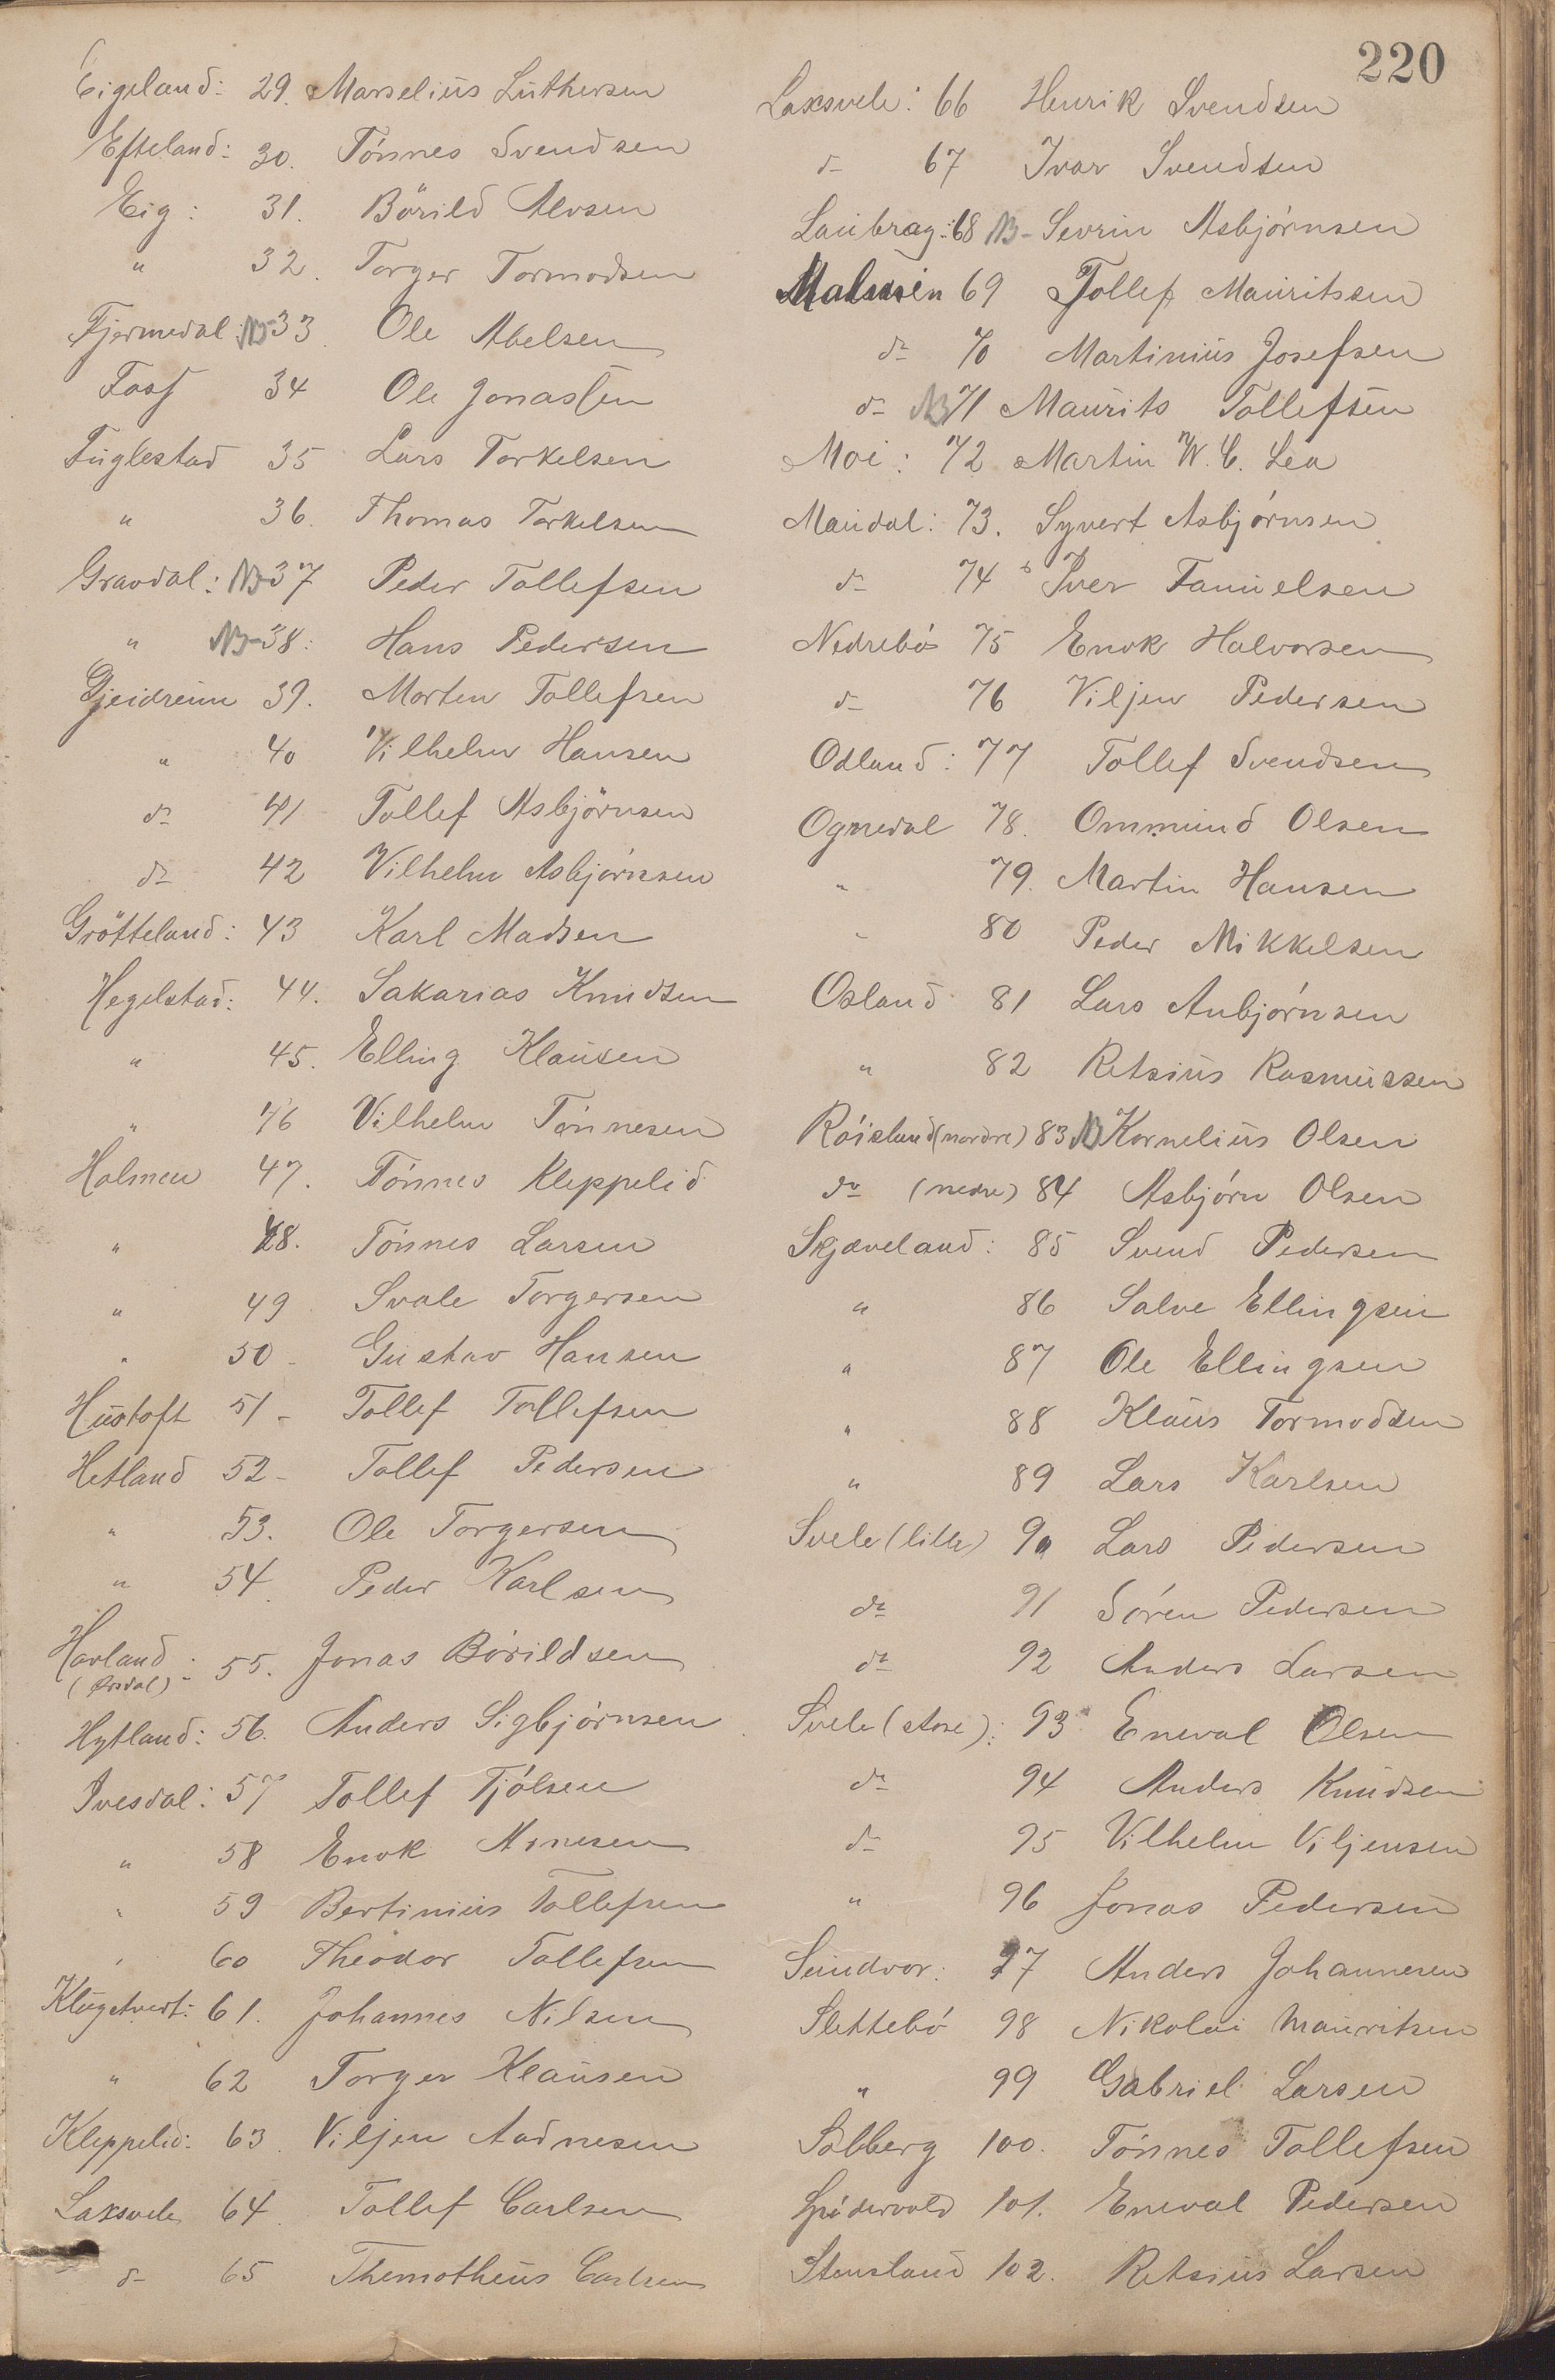 220
Eigeland: 29. Marselius Luthersen
Efteland: 30. Tönnes Svendsen
Eig: 31. Börild Alvsen
" 32. Torger Tormodsen
Fjermedal: NB 33. Ole Abelsen
Foss 34 Ole Jonassen
Fuglestad 35 Lars Torkelsen
" 36. Thomas Torkelsen
Gravdal: NB 37 Peder Tollefsen
" NB 38: Hans Pedersen
Gjeidreim 39. Morten Tollefsen
" 40 Vilhelm Hansen
do 41 Tollef Asbjörnsen
do 42 Vilhelm Asbjörnsen
Grötteland: 43 Karl Madsen
Hegelstad: 44. Sakarias Knudsen
" 45. Elling Klausen
" 46 Vilhelm Tönnesen
Holmen 47. Tönnes Kleppelid
" 48. Tönnes Larsen
" 49 Svale Torgersen
" 50 - Gustav Hansen
Hustoft 51 - Tollef Tollefsen
Hetland 52 - Tollef Pedersen
" 53. Ole Torgersen
" 54. Peder Karlsen
Havland (Örsdal): 55. Jonas Börildsen
Hytland: 56. Anders Sigbjörnsen
Ivesdal: 57 Tollef Fjölsen
" 58 Enok Arnesen
" 59 Bertinius Tollefsen
" 60 Theodor Tollefsen
Klugetvert: 61. Johannes Nilsen
" 62 Torger Klausen
Kleppelid: 63. Viljen Aadnesen
Laksvele 64. Tollef Carlsen
do 65 Themotheus Carlsen
Laxsvele: 66 Henrik Svendsen
do 67 Ivar Svendsen
Laubrag: 68 NB - Sevrin Asbjörnsen
Malmein 69 Tollef Mauritssen
do 70 Martinius Josefsen
do NB 71 Maurits Tollefsen
Moi: 72 Martin W. C. Lea
Maudal: 73. Syvert Asbjörnsen
do 74 Iver Tanielsen
Nedrebö 75 Enok Halvorsen
do 76 Viljen Pedersen
Odland: 77 Tollef Svendsen
Ognedal 78. Ommund Olsen
" 79. Martin Hansen
" 80 Peder Mikkelsen
Osland 81 Lars Anbjörnsen
" 82 Retsius Rasmussen
Röisland (nordre) 83 NB Kornelius Olsen
do (nedre) 84 Asbjörn Olsen
Skjæveland: 85 Svend Pedersen
" 86 Salve Ellingsen
" 87 Ole Ellingsen
" 88 Klaus Tormodsen
" 89 Lars Karlsen
Svele (lille) 90 Lars Pedersen
do 91 Sören Pedersen
do 92 Anders Larsen
Svele (store): 93 Eneval Olsen
do 94 Anders Knudsen
do 95 Vilhelm Viljensen
" 96 Jonas Pedersen
Sundvor: 97 Anders Johannesen
Slettebö 98 Nikolai Mauritsen
" 99 Gabriel Larsen
Solberg 100. Tönnes Tollefsen
101. Eneval Pedersen
Stensland 102. Retsius Larsen